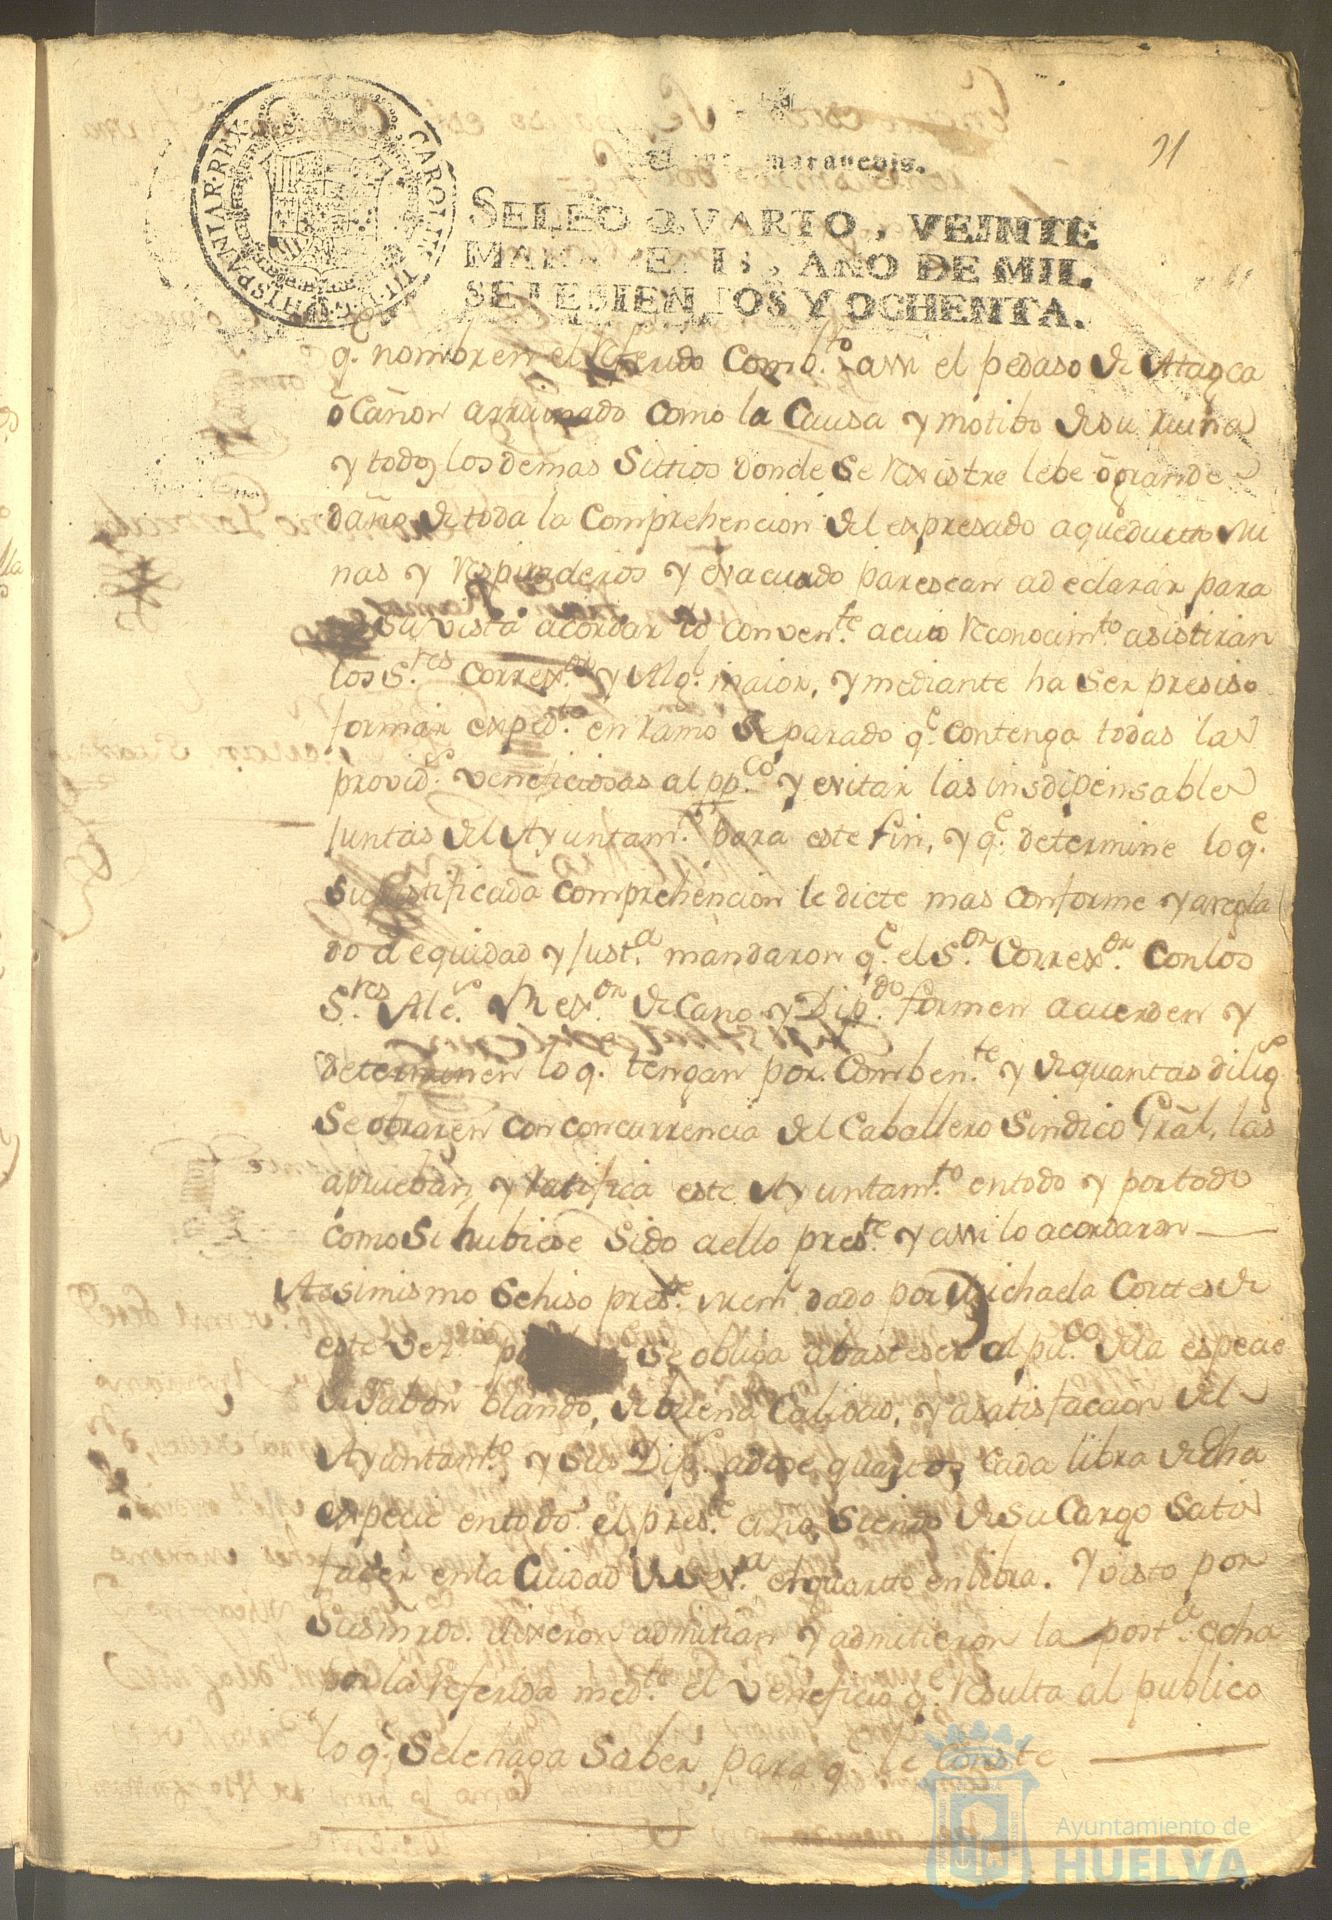 21
maravedis.
SELLO QVARTO, VEINTE
MARAVEDIS, AÑO DE MIL
SETESIENTOS Y OCHENTA.
CAROLUS III D G HISPANIAR REX
q.e nombren el referido Comb.to assi el pedaso de Atagea
ò Cañon arruinado como la Causa y motibo de su ruina
y todos los demas Sittios donde se rexistre lebe ò grande
daño de toda la Comprehencion del expresado aqueducto mi
nas y respiraderos y evacuado parescan a declarar para
su vista acordar lo conven.te a cuio reconocim.to asistiran
los S.res Correx.or y Alg.l maior, y mediante ha ser presiso
formar exped.te en ramo separado q.e contenga todas las
provid.s veneficiosas al pp.co y evitar las insdipensables
juntas del Ayuntam.to para este fin, y q.e determine lo q.e
su justificada comprehencion le dicte mas conforme y arregla
do a equidad y just.a mandaron q.e el S.or Correx.or con los
S.res Alc.s Rex.or de Cano y Dip.do formen acuerden y
determinen lo q.e tengan por comben.te y de quantas dilig.s
se obraren con concurrencia del Caballero Sindico Grãl, las
aprueban, y ratifica este Ayuntam.to en todo y por todo
como si hubiese sido a ello pres.te y assi lo acordaron
Assimismo se hiso pres.te mem.l dado por Michaela Corttes de
este vez.no se obliga abasteser al pu.co de la especie
de Jabon blando, de buena Calidad, y a satisfaccion del
Ayuntam.to y sus Dip.s a dose quartos cada libra de dha
especie en todo el pres.te año siendo de su Cargo Satis
facer en la Ciudad de Sev.a el quartto en libra. Y visto por
sus mrds. dixeron admitian y admitieron la post.a echa
por la referida med.te el veneficio q.e resulta al publico
lo q.e se le haga saber para q.e le conste
Ayuntamiento de
HUELVA